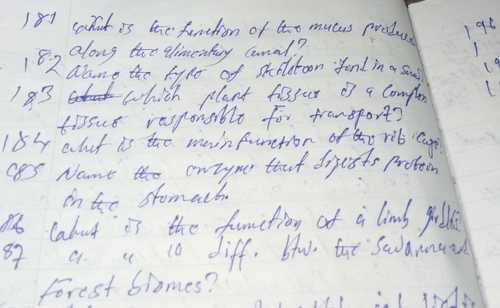 181 What is the function of the mucus produced
along the alimentary canal?
182 Name the type of skeleton found in a snail
183 which plant tissue is a complex
tissue responsible for transport?
184 what is the main function of the rib cage
185 Name the enzyme that digests protein
in the stomach.
86 What is the function of a limb girdle?
87 " " 10 diff. btw. the savanna and
Forest biomes?
196
1
19
1